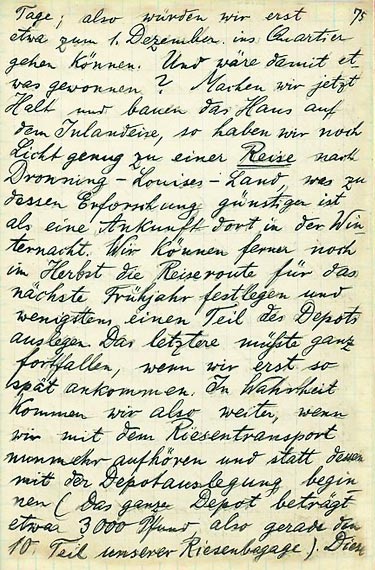 Tage, also würden wir erst 75
etwa zum 1. Dezember ins Quartier
gehen können. Und wäre damit et
was gewonnen? Machen wir jetzt
Halt und bauen das Haus auf
dem Inlandeise, so haben wir noch
Licht genug zu einer Reise nach
Dronning-Louises-Land, was zu
dessen Erforschung günstiger ist
als eine Ankunft dort in der Win
ternacht. Wir können ferner noch
im Herbst die Reiseroute für das
nächste Frühjahr festlegen und
wenigstens einen Teil des Depots
auslegen. Das letztere müßte ganz
fortfallen, wenn wir erst so
spät ankommen. In Wahrheit
kommen wir also weiter, wenn
wir mit dem Riesentransport
nunmehr aufhören und statt dessen
mit der Depotauslegung begin
nen (das ganze Depot beträgt
etwa 3000 Pfund also gerade den
10. Teil unserer Riesenbagage). Diese